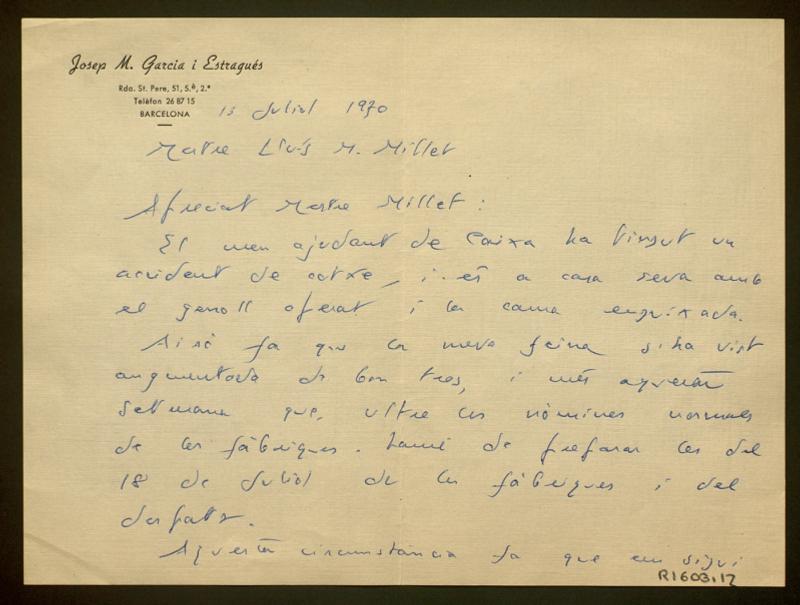 Josep M. Garcia i Estragués
Rda. St. Pere, 51, 5.è, 2.ª
Telèfon 26 87 15
BARCELONA
13 Juliol 1970
Mestre Lluís M. Millet
Apreciat Mestre Millet:
El meu ajudant de Caixa ha tingut un
accident de cotxe, i és a casa seva amb
el genoll operat i la cama enguixada.
Això fa que la meva feina s'ha vist
augmentada de bon tros, i més aquesta
setmana que, ultra les nòmines normals
de les fàbriques. haué de preparar les del
18 de Juliol de les fàbriques i del
despatx.
Aquesta circumstància fa que em sigui
R1603,12